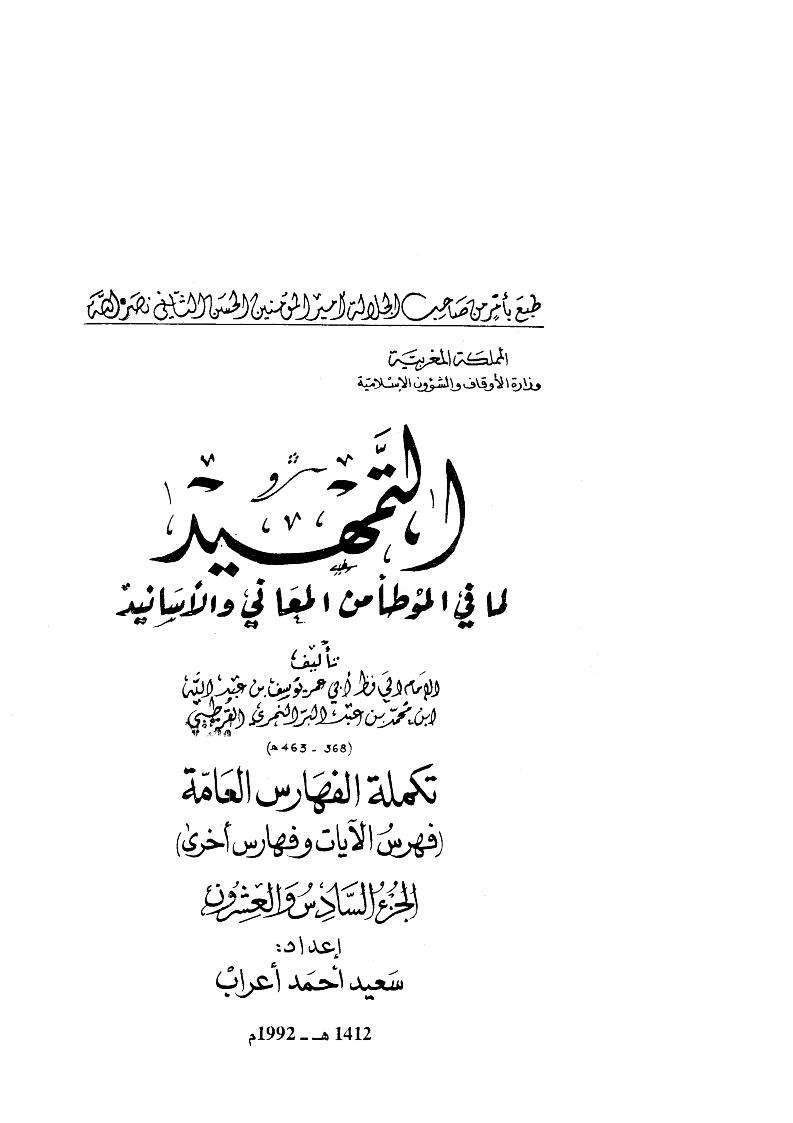 طبع بأمر من صاحب الجلالة أمير المؤمنين الحسن الثاني نصره الله
المملكة المغربية
وزارة الأوقاف والشؤون الإسلامية
التمهيد
لما في الموطأ من المعاني والأسانيد
تأليف
الإمام الحافظ أبي عمر يوسف بن عبد الله
ابن محمد بن عبد البر النمري القرطبي
(368 - 463 هـ)
تكملة الفهارس العامة
(فهرس الآيات وفهارس أخرى)
الجزء السادس والعشرون
إعداد:
سعيد أحمد أعراب
1412 هـ ـ 1992م